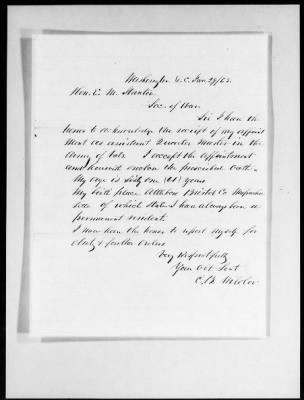 Washington D.C. Jan. 28/63.
Hon. E. M. Stanton
Sec. of War.
Sir I have the
honor to acknowledge the receipt of my appoint
ment as assistant Quarter Master in the
Army of Vols. I accept the appointment
and herewith enclose the prescribed Oath.
My age is Sixty one (61) years.
My birth place Attleboro Bristol Co Massachu
setts of which State I have always been a
permanent resident.
I now have the honor to report myself for
duty & further orders.
Very Respectfully
Your Obt Servt
C. B.